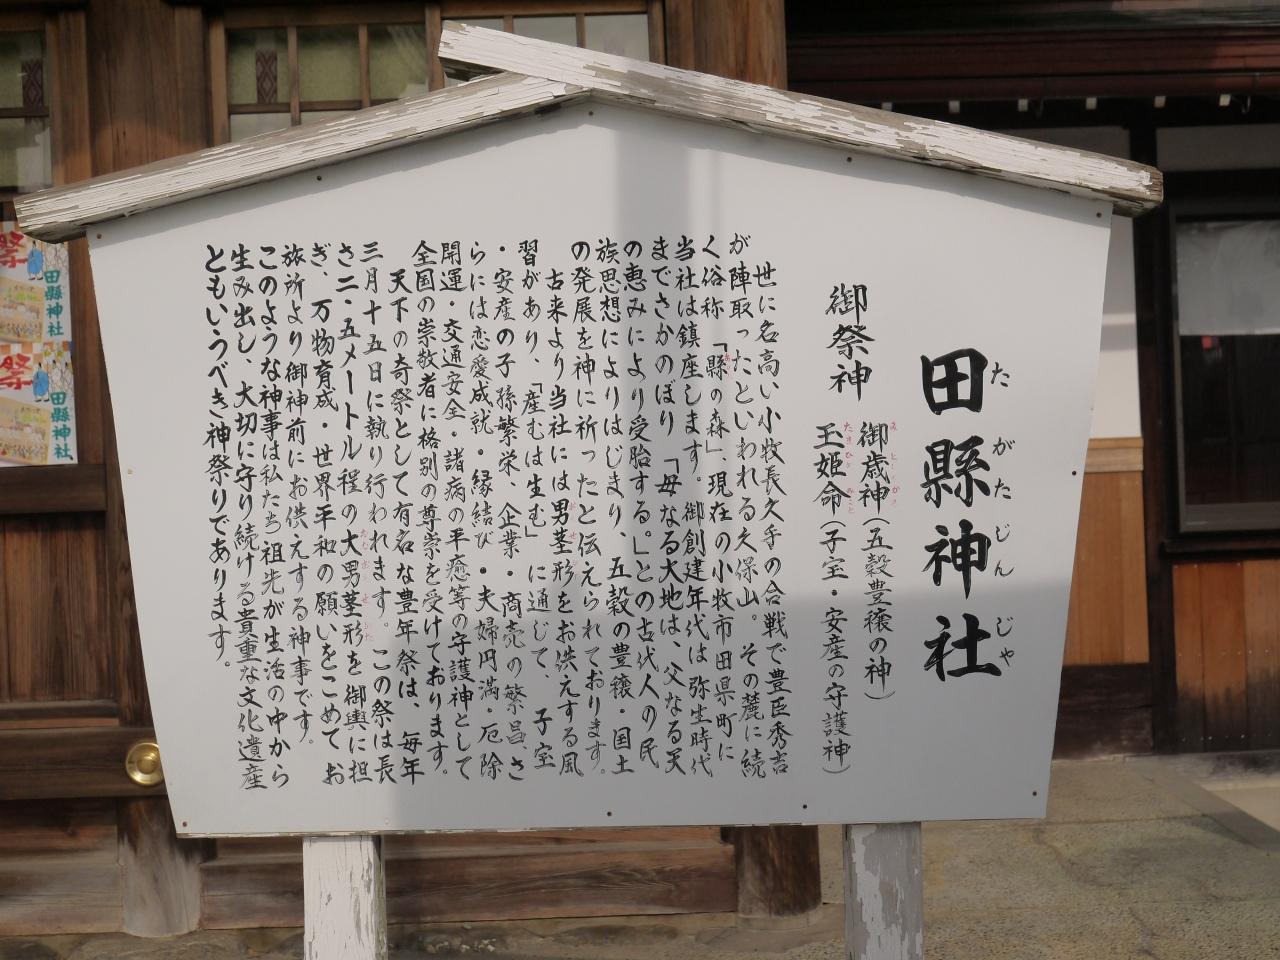 田縣神社
たがたじんじゃ
御祭神
御歳神(五穀豊穣の神)
玉姫命(子宝・安産の守護神)
世に名高い小牧長久手の合戦で豊臣秀吉
が陣取ったといわれる久保山。その麓に続
く俗称「縣の森」、現在の小牧市田県町に
当社は鎮座します。御創建年代は弥生時代
までさかのぼり「母なる大地は、父なる天
の恵みにより受胎する。」との古代人の民
族思想によりはじまり、五穀の豊穣・国土
の発展を神に祈ったと伝えられております。
古来より当社には男茎形をお供えする風
習があり、「産むは生む」に通じて、子宝
・安産の子孫繁栄、企業・商売の繁昌、さ
らには恋愛成就・縁結び・夫婦円満・厄除
開運・交通安全・諸病の平癒等の守護神として
全国の崇敬者に格別の尊崇を受けております。
天下の奇祭として有名な豊年祭は、毎年
三月十五日に執り行われます。この祭は長
さ二・五メートル程の大男茎形を御輿に担
ぎ、万物育成・世界平和の願いをこめてお
旅所より御神前にお供えする神事です。
このような神事は私たち祖先が生活の中から
生み出し、大切に守り続ける貴重な文化遺産
ともいうべき神祭りであります。
祭
田縣神社
祭
田縣神社